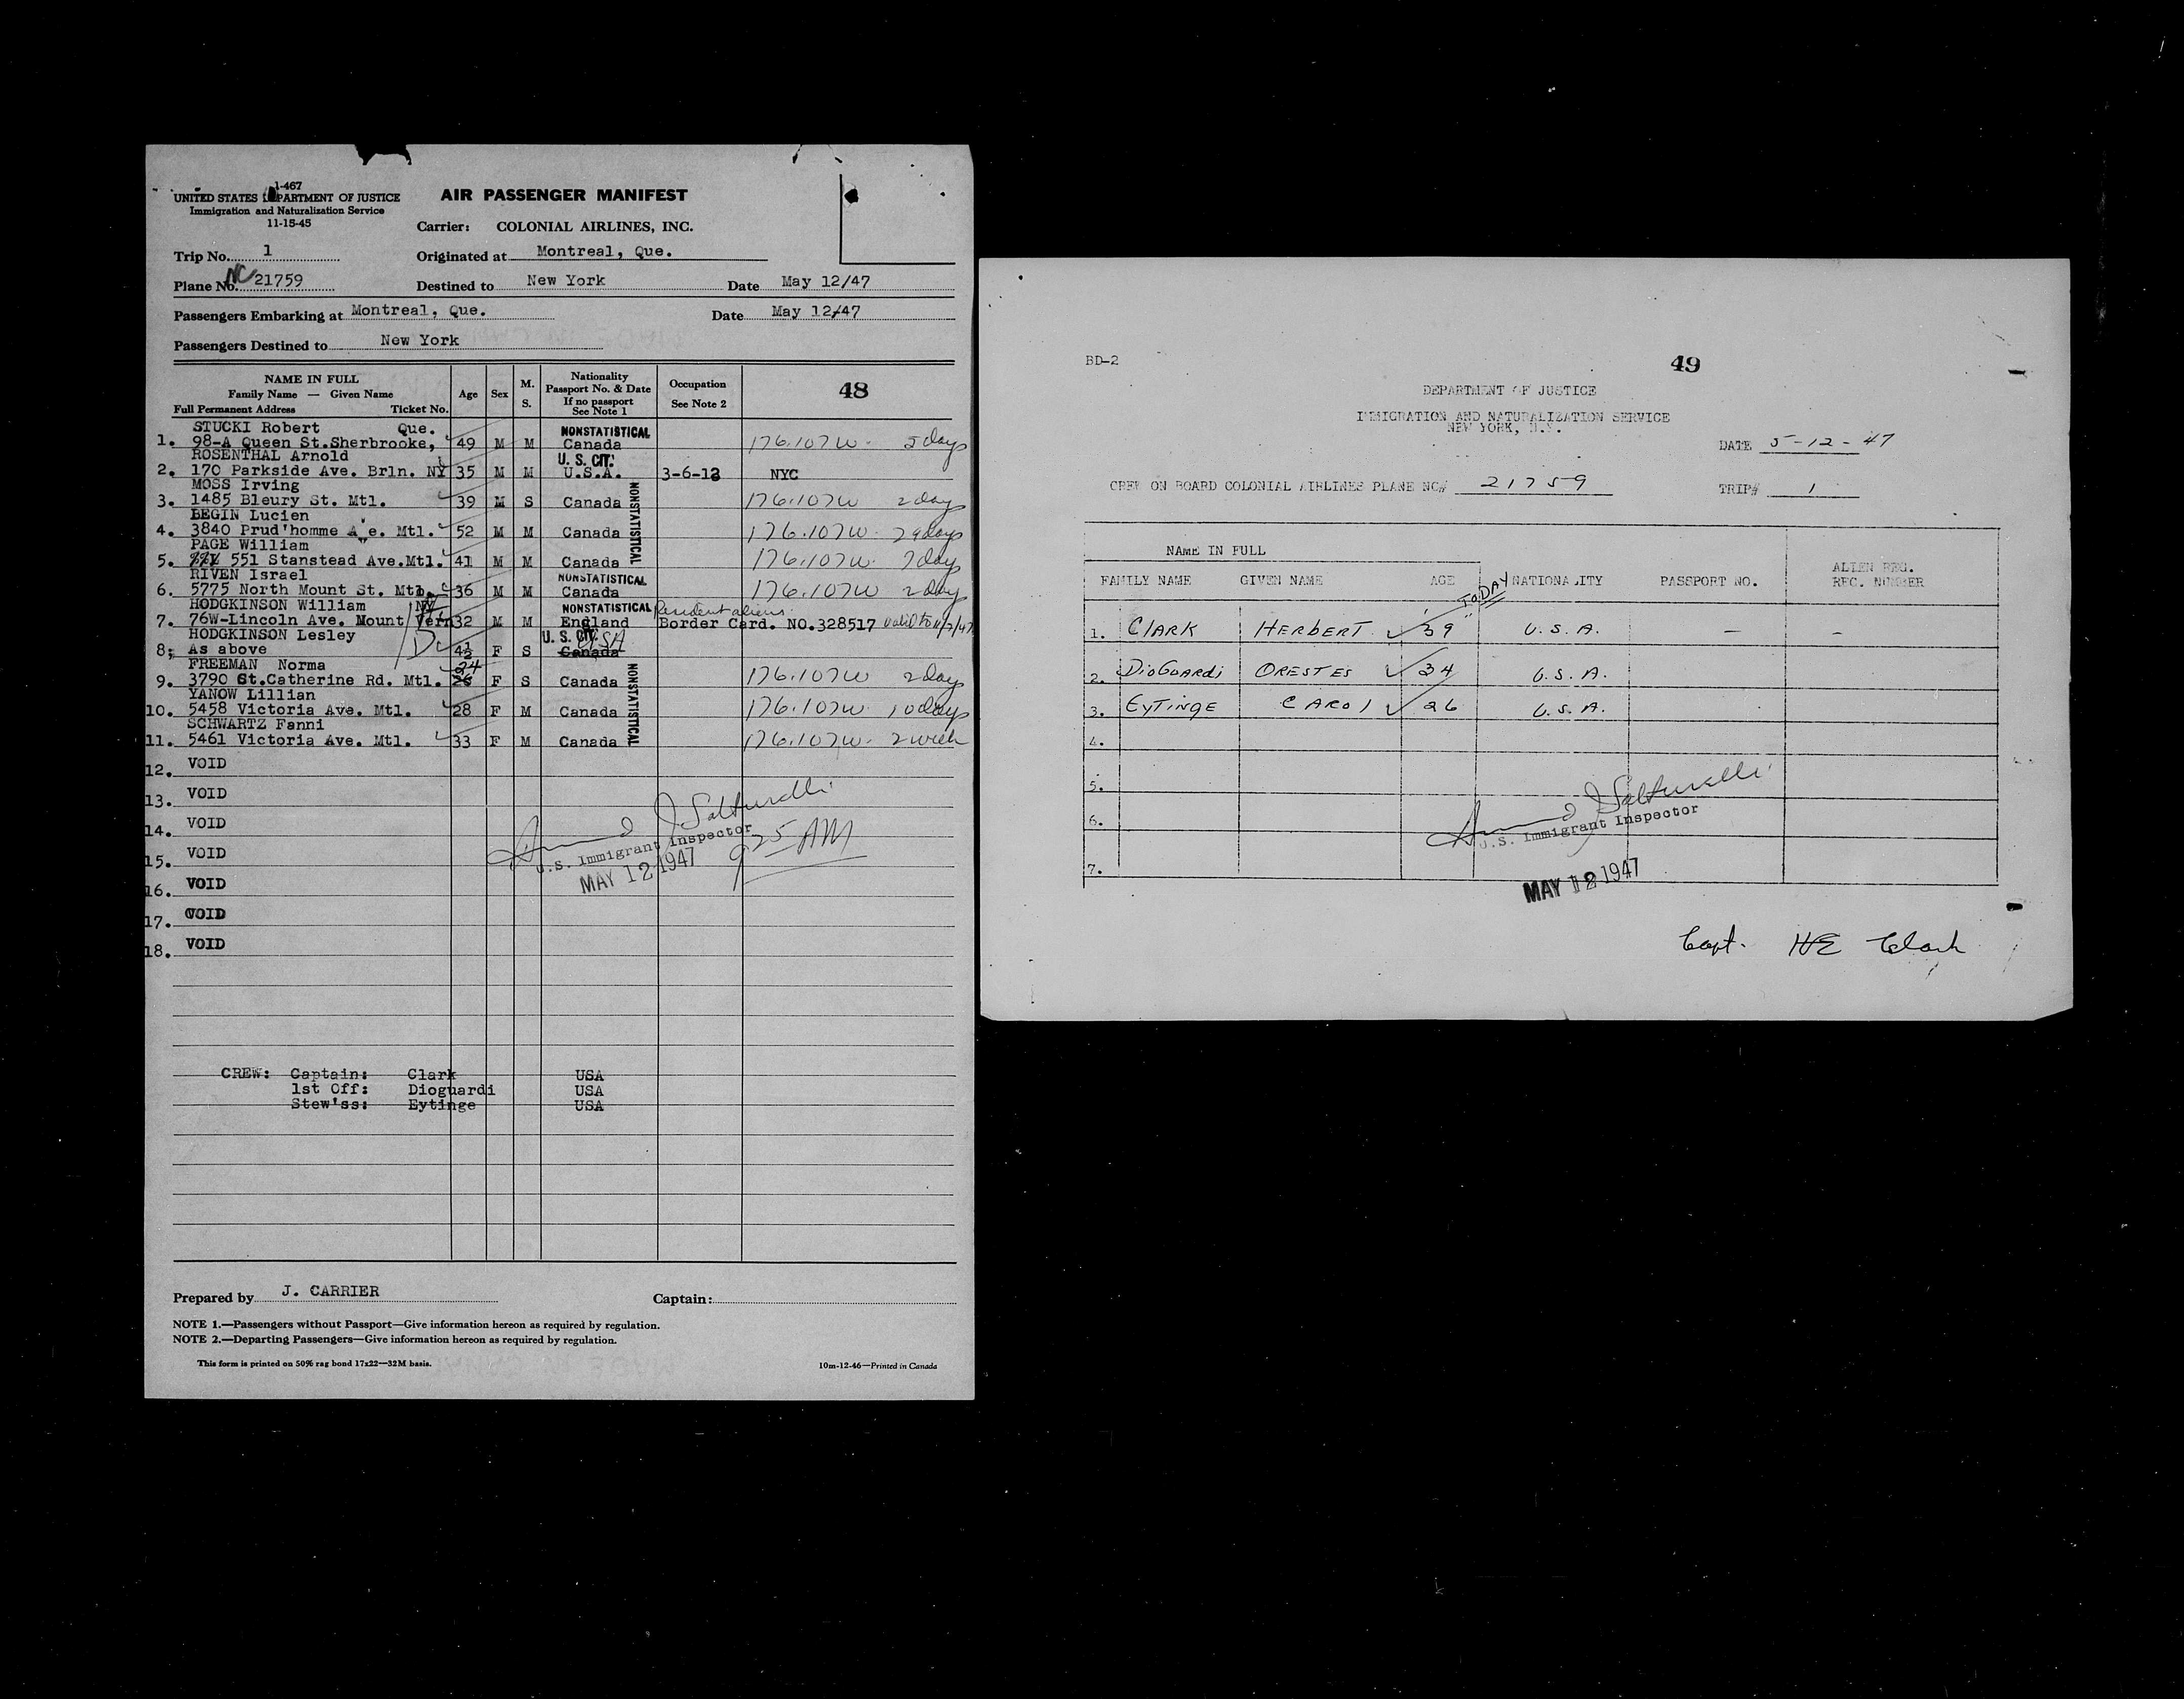 1-467
UNITED STATES DEPARTMENT OF JUSTICE
Immigration and Naturalization Service
11-15-45
AIR PASSENGER MANIFEST
Carrier: COLONIAL AIRLINES, INC.
Trip No. 1
Originated at Montreal, Que.
Plane No. NC 21759
Destined to New York Date May 12/47
Passengers Embarking at Montreal, Que. Date May 12/47
Passengers Destined to New York
NAME IN FULL
Family Name — Given Name
Full Permanent Address Ticket No.
Age Sex M. S.
Nationality
Passport No. & Date
If no passport
See Note 1
Occupation
See Note 2
48
STUCKI Robert Que. NONSTATISTICAL
1. 98-A Queen St.Sherbrooke, 49 M M Canada 176.107W. 5 days
ROSENTHAL Arnold U. S. CIT.
2. 170 Parkside Ave. Brln. NY 35 M M U.S.A. 3-6-12 NYC
MOSS Irving
3. 1485 Bleury St. Mtl. 39 M S Canada 176.107W 2 day
NONSTATISTICAL
BEGIN Lucien
4. 3840 Prud'homme Ave. Mtl. 52 M M Canada 176.107W. 29 days
PAGE William
5. 551 Stanstead Ave.Mtl. 41 M M Canada 176.107W. 7 day
RIVEN Israel NONSTATISTICAL
6. 5775 North Mount St. Mtl. 36 M M Canada 176.107W 2 day
HODGKINSON William NY NONSTATISTICAL Resident aliens
7. 76W-Lincoln Ave. Mount Vern 32 M M England Border Card. NO.328517 valid to 11/7/47
HODGKINSON Lesley U. S. CIT. USA
8; As above 4½ F S Canada
FREEMAN Norma 24
9. 3790 St.Catherine Rd. Mtl. 26 F S Canada 176.107W 2 day
NONSTATISTICAL
YANOW Lillian
10. 5458 Victoria Ave. Mtl. 28 F M Canada 176.107W. 10 days
SCHWARTZ Fanni
11. 5461 Victoria Ave. Mtl. 33 F M Canada 176.107W. 2 week
12. VOID
13. VOID
14. VOID
15. VOID
16. VOID
17. VOID
18. VOID
J Salturelli
U.S. Immigrant Inspector
MAY 12 1947
925 AM
CREW: Captain: Clark USA
1st Off: Dioguardi USA
Stew'ss: Eytinge USA
Prepared by J. CARRIER Captain:
NOTE 1.—Passengers without Passport—Give information hereon as required by regulation.
NOTE 2.—Departing Passengers—Give information hereon as required by regulation.
This form is printed on 50% rag bond 17x22—32M basis. 10m-12-46—Printed in Canada
BD-2
49
DEPARTMENT OF JUSTICE
IMMIGRATION AND NATURALIZATION SERVICE
NEW YORK, N.Y.
DATE 5-12-47
CREW ON BOARD COLONIAL AIRLINES PLANE NC# 21759 TRIP# 1
NAME IN FULL
FAMILY NAME GIVEN NAME AGE NATIONALITY PASSPORT NO. ALIEN REG. REC. NUMBER
TODAY
1. CLARK HERBERT 39 U.S.A. — —
2. DioGuardi ORESTES 34 U.S.A.
3. EyTinge CAROl 26 U.S.A.
4.
5.
6.
7.
J Salturelli
U.S. Immigrant Inspector
MAY 12 1947
Capt. HE Clark